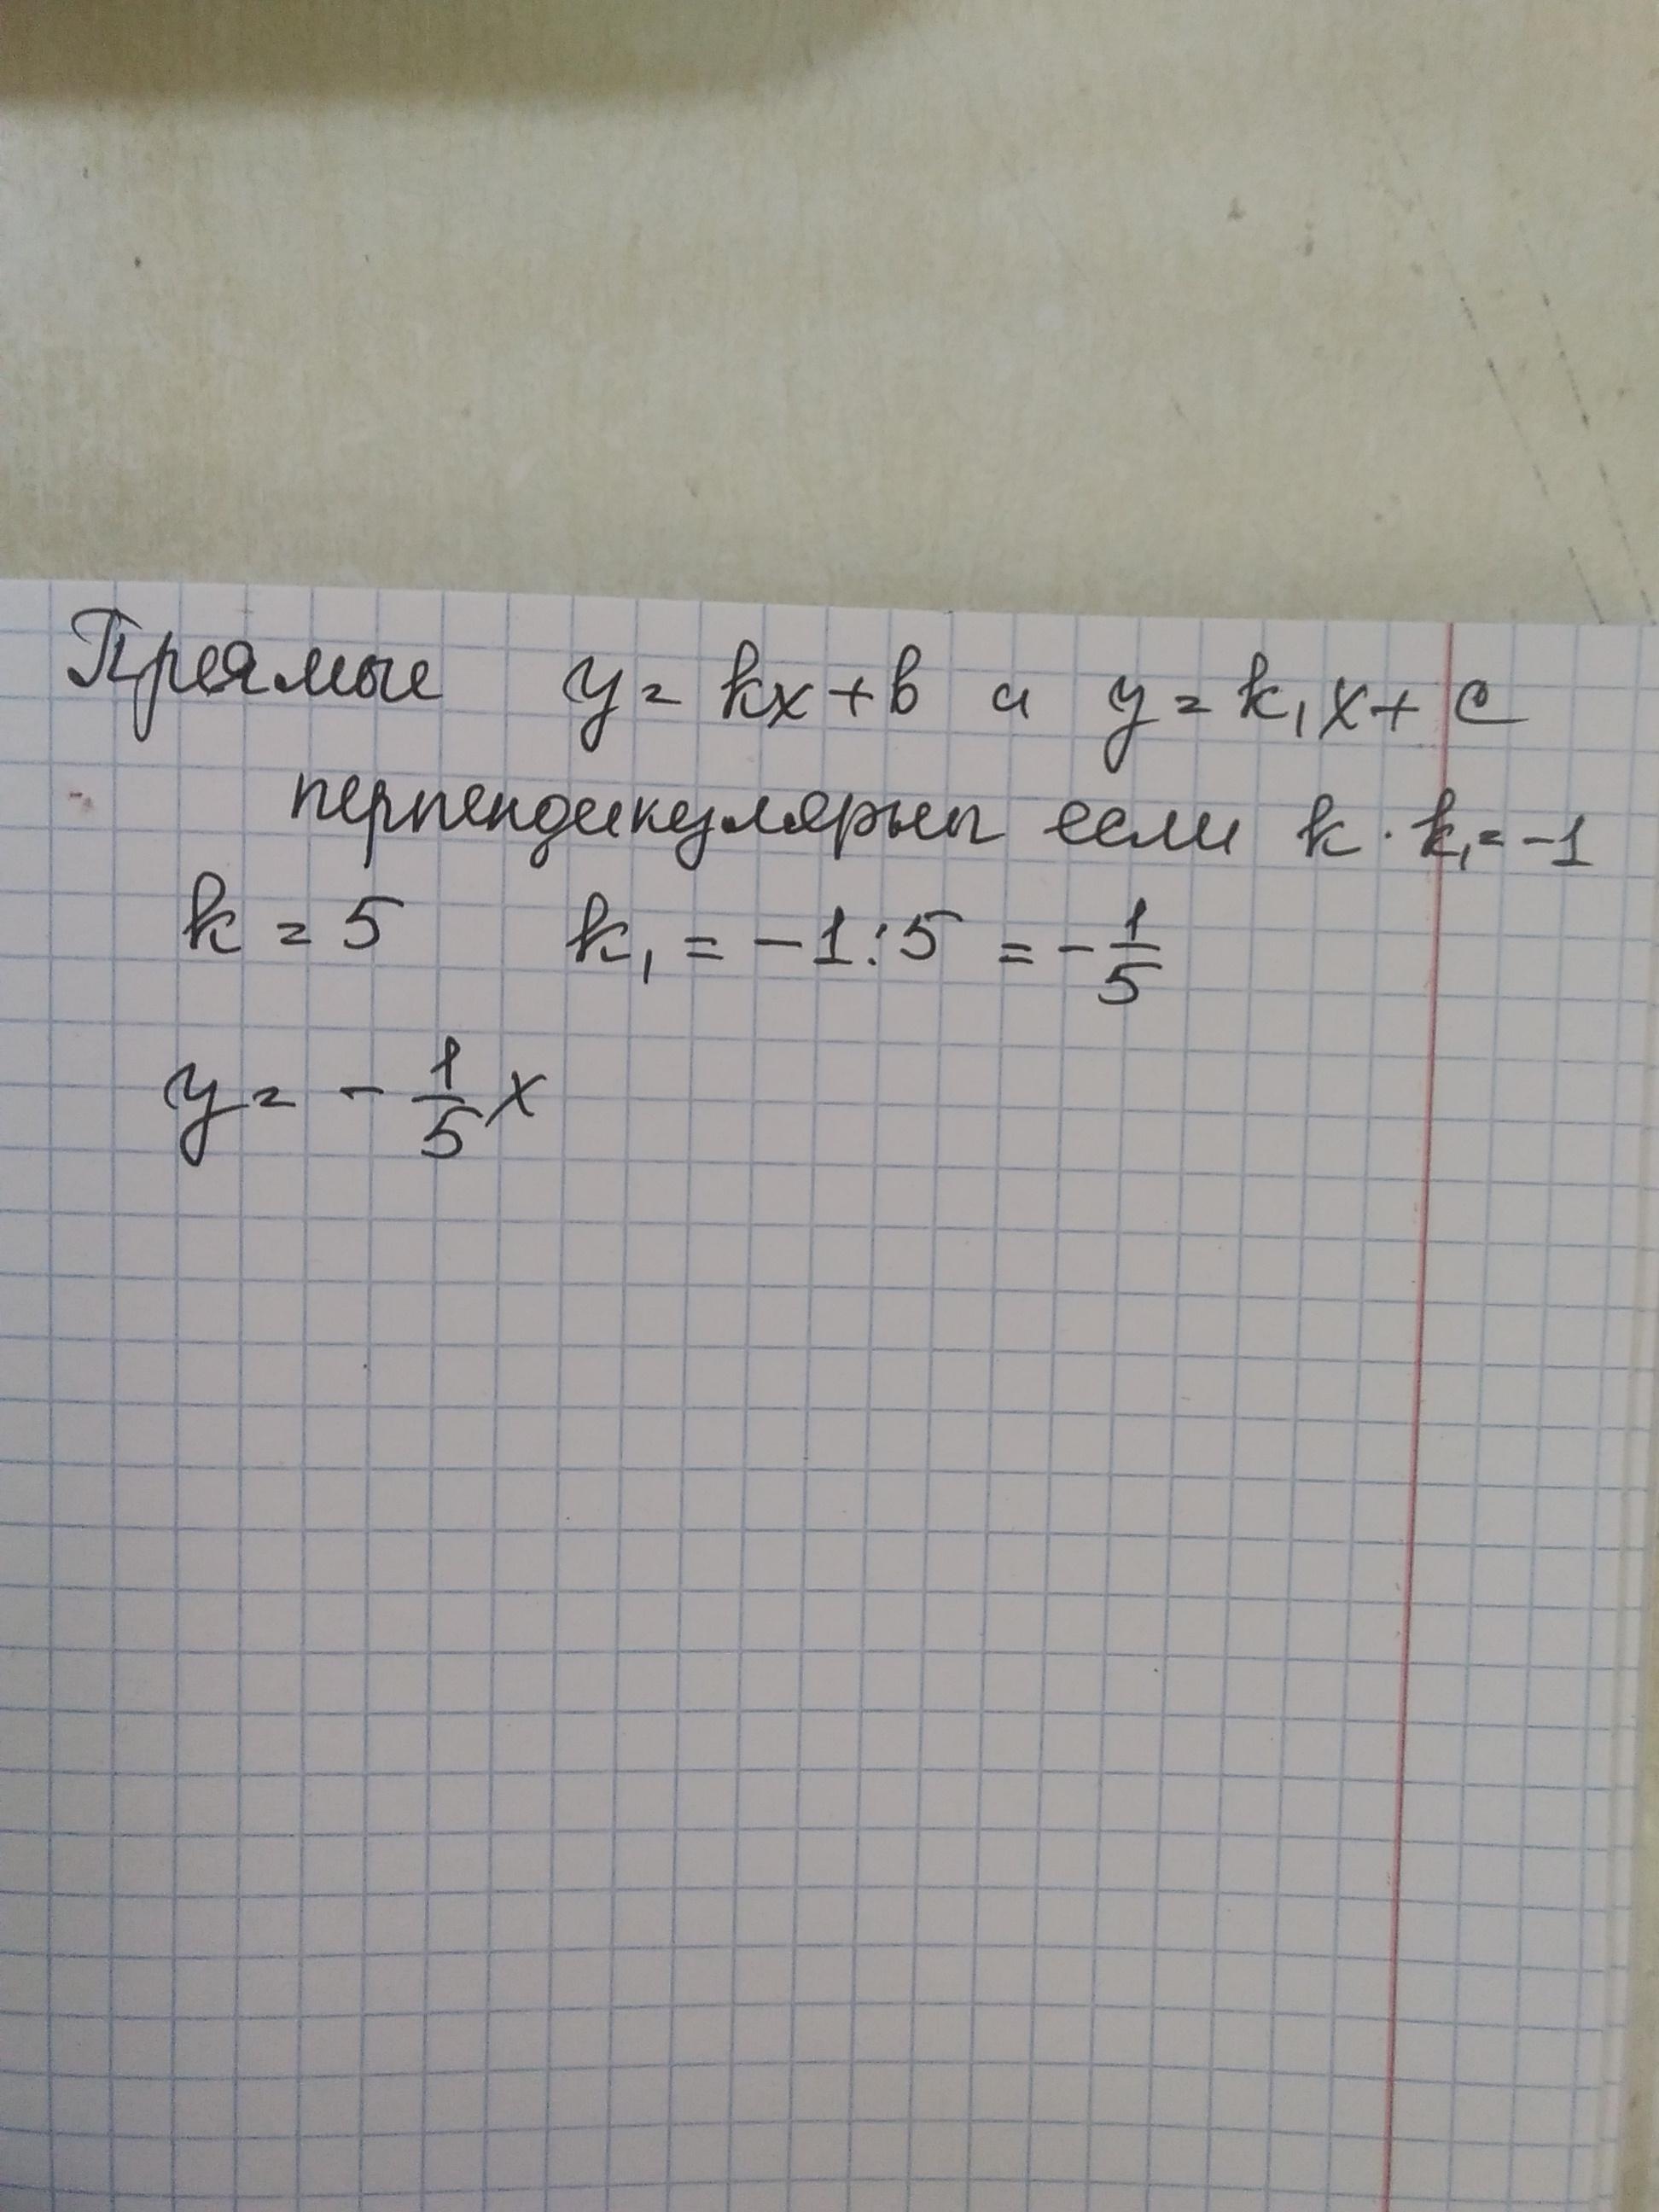 Прямые y = kx + b и y = k₁x + c
перпендикулярны если k · k₁ = -1
k = 5 k₁ = -1:5 = -1/5
y = - 1/5 x